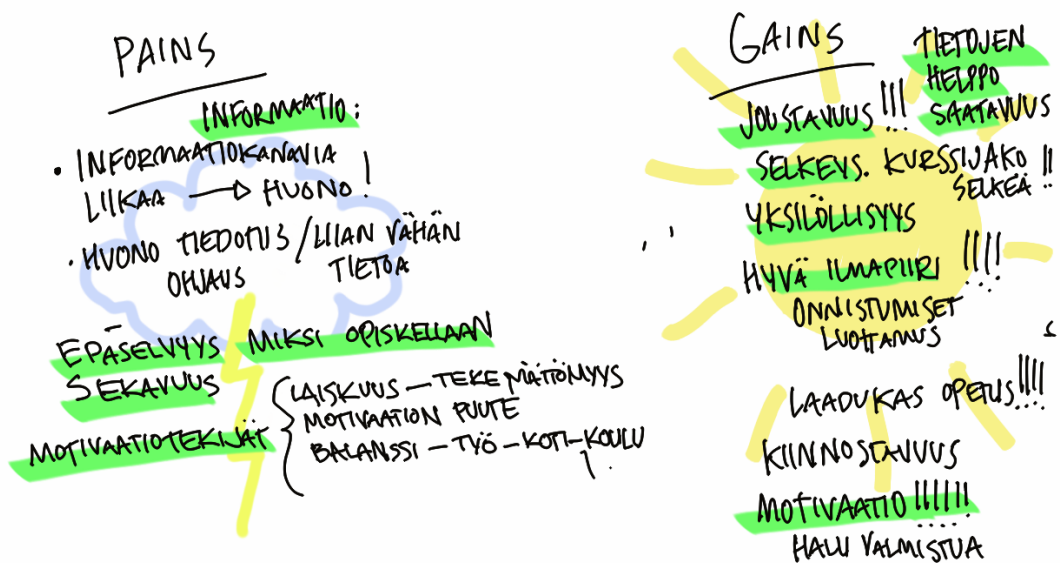 PAINS
INFORMAATIO:
• INFORMAATIOKANAVIA
LIIKAA → HUONO!
• HUONO TIEDOTUS / LIIAN VÄHÄN
OHJAUS TIETOA
EPÄSELVYYS MIKSI OPISKELLAAN
SEKAVUUS
LAISKUUS – TEKEMÄTTÖMYYS
MOTIVAATION PUUTE
MOTIVAATIOTEKIJÄT
BALANSSI – TYÖ – KOTI – KOULU
GAINS
TIETOJEN
HELPPO
SAATAVUUS
JOUSTAVUUS !!!
SELKEYS. KURSSIJAKO
SELKEÄ !!
YKSILÖLLISYYS
HYVÄ ILMAPIIRI !!!!
ONNISTUMISET
LUOTTAMUS
LAADUKAS OPETUS!!!!
KIINNOSTAVUUS
MOTIVAATIO !!!!!!
HALU VALMISTUA